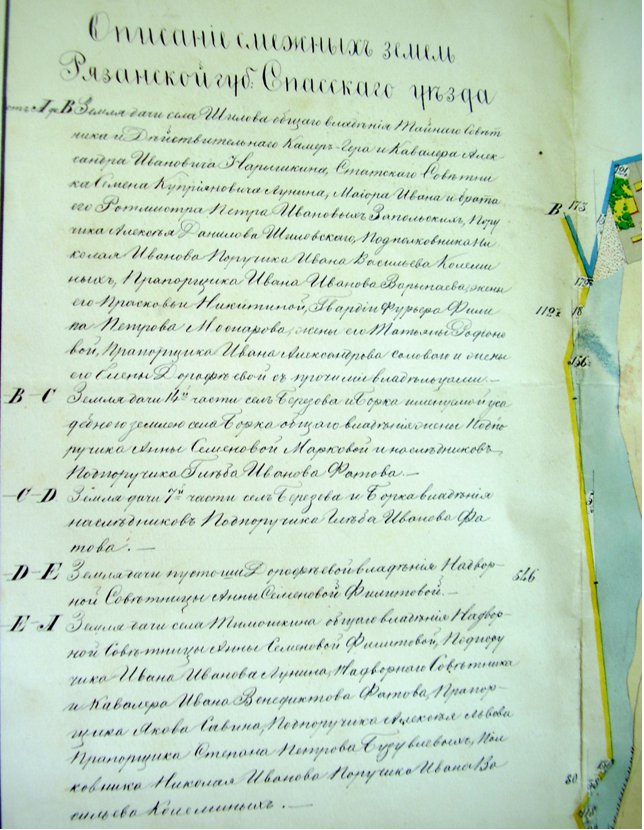 Описаніе смежныхъ земель
Рязанской губ. Спасскаго уѣзда
отъ А до В Земля дачи села Шилова общаго владѣнія Тайнаго Совѣт
ника и Дѣйствительнаго Камеръ-Гера и Кавалера Алек-
сандра Ивановича Нарышкина, Статскаго Совѣтни
ка Семена Купріяновича Лунина, Маіора Ивана и брата
его Ротмистра Петра Ивановыхъ Запольскихъ, Пору
чика Алексѣя Данилова Шиловскаго, Подполковника Ни
колая Иванова Поручика Ивана Васильева Колеми
ныхъ, Прапорщика Ивана Иванова Барыпаева, жены
его Прасковьи Никитиной, Гвардіи Фурьера Фили
па Петрова Мосоарова, жены его Татьяны Родіоно
вой, Прапорщика Ивана Александрова Соловаго и жены
его Елены Дорофѣевой съ прочими владѣльцами. —
В – С Земля дачи 14й части селъ Березова и Борка именуемой уса
дебною землею села Борка общаго владѣнія жены Подпо
ручика Анны Семеновой Марковой и наслѣдниковъ
Подпоручика Глѣба Иванова Фатова. —
С – D Земля дачи 7й части селъ Березова и Борка владѣнія
наслѣдниковъ Подпоручика Глѣба Иванова Фа
това. —
D – Е Земля дачи пустоши Дорофѣевой владѣнія Надвор-
ной Совѣтницы Анны Семеновой Филитовой. —
Е – А Земля дачи села Тимошкина общаго владѣнія Надвор-
ной Совѣтницы Анны Семеновой Филитовой, Подпору
чика Ивана Иванова Лунина, Надворнаго Совѣтника
и Кавалера Ивана Венедиктова Фатова, Прапор-
щика Якова Савина, Подпоручика Алексѣя Львова
Прапорщика Степана Петрова Бузувлевыхъ, Пол
ковника Николая Иванова Поручика Ивана Ва
сильева Колеминыхъ. —
В
173
179
112
18
156
546
80